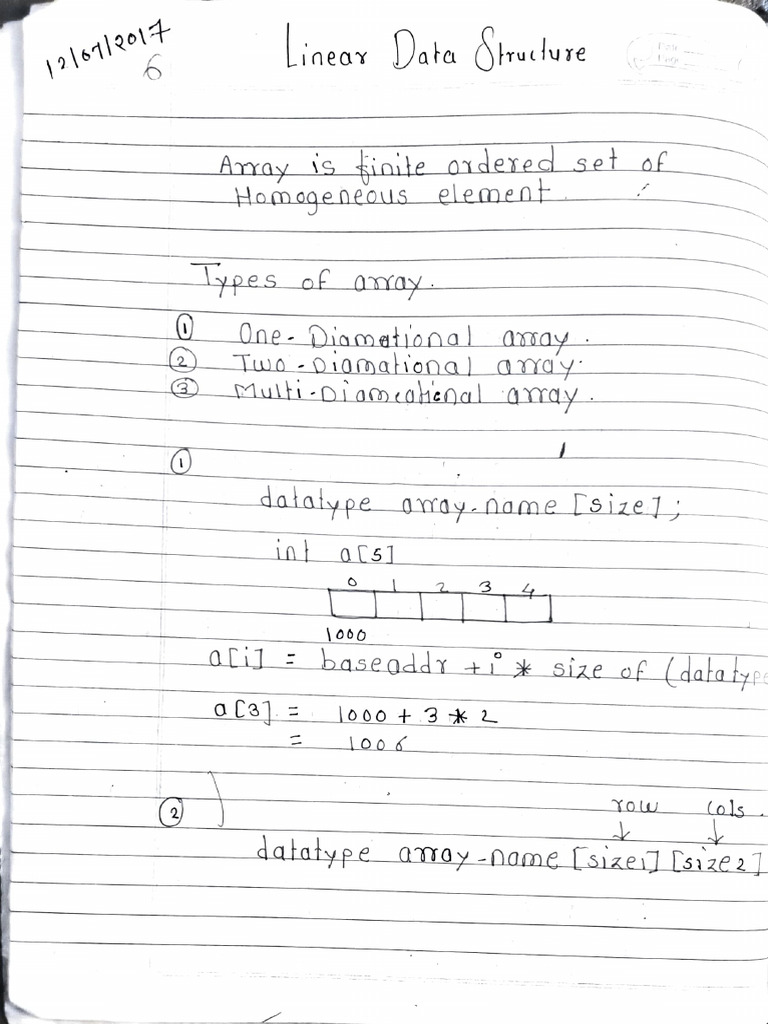 12/07/2017
6
Linear Data Structure
Array is finite ordered set of
Homogeneous element.
Types of array.
① One-Diamational array.
② Two-Diamational array.
③ Multi-Diameational array.
①
datatype array-name [size];
int a[5]
0 1 2 3 4
1000
a[i] = baseaddr + i * size of (datatype
a[3] = 1000 + 3 * 2
= 1006
row cols.
②
datatype array-name [size1] [size2]